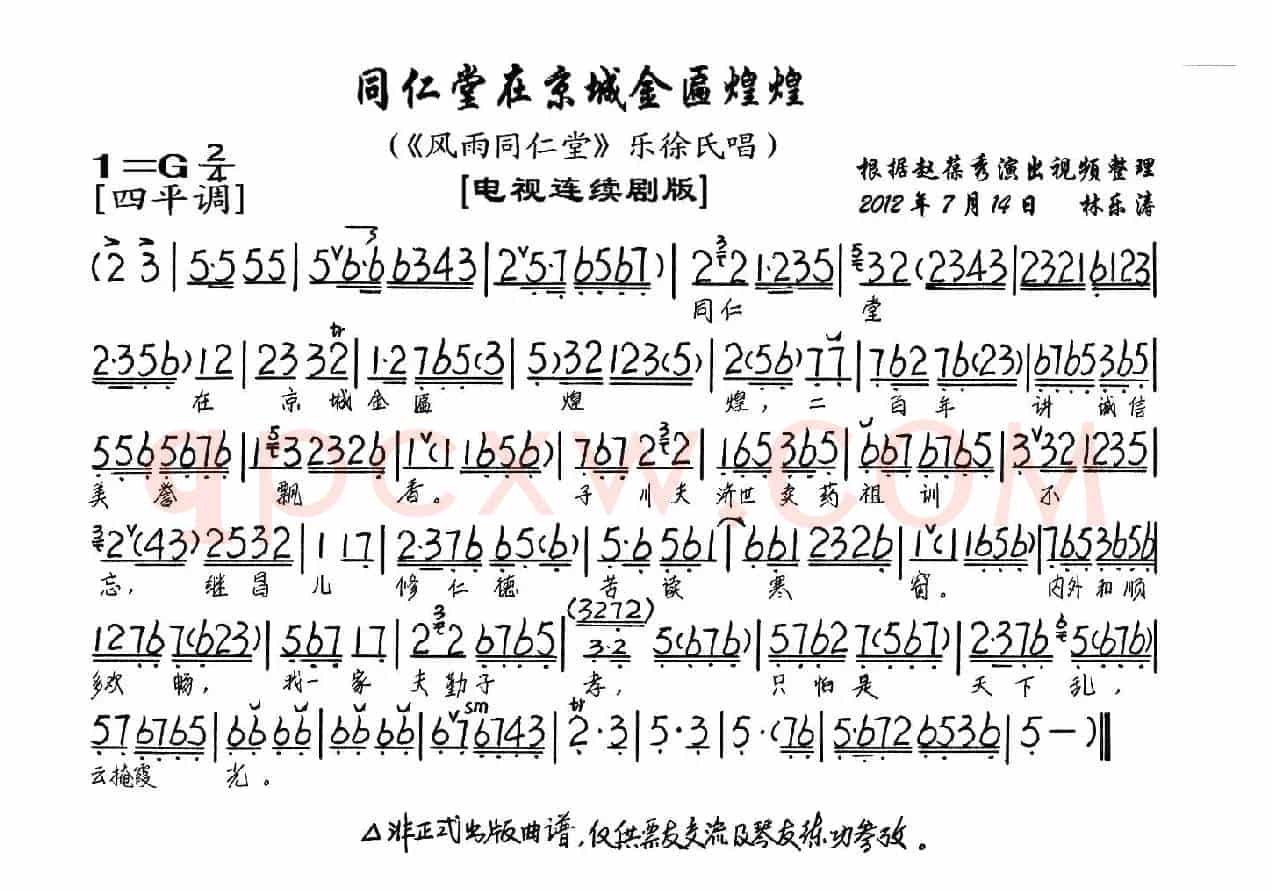 同仁堂在京城金匾煌煌
(《风雨同仁堂》乐徐氏唱)
1=G 2/4
[四平调]
[电视连续剧版]
根据赵葆秀演出视频整理
2012年7月14日 林乐涛
(2 3 | 5·5 5 5 | 5 6·6 6343 | 2 5·7 6567) | 2 2 1·235 | 32(2343 | 23216123 |
同仁 堂
2·356) 12 | 23 32 | 1·2 765(3 | 5)32 123(5) | 2(56)77 | 762 76(23) | 67653665 |
在 京城金匾 煌 煌,二 百年 讲诚信
5565676 | 13 2326 | 1(1 1656) | 767 2 2 | 16536 5 | 667 6765 | 332 1235 |
美誉 飘 香。 子川夫济世卖药祖训 不
2(43) 2532 | 1 17 | 2·376 65(6) | 5·6 561 | 661 2326 | 1(1 1656) | 7653656 |
忘,继昌儿 修仁德 苦读 寒 窗。 内外和顺
1276 7(623) | 567 17 | 2 2 6765 | (3272) 3·2 5(676) | 5762 7(567) | 2·376 5(676) |
多欢畅,我一家夫勤子 孝, 只怕是 天下乱,
57 6765 | 66 66 | 66 66 | 67 6743 | 2·3 | 5·3 | 5·(76 | 5·672 6536 | 5 — ) ‖
云掩霞 光。
tr
sm
△非正式出版曲谱,仅供票友交流及琴友练功参考。
qpcxw.com